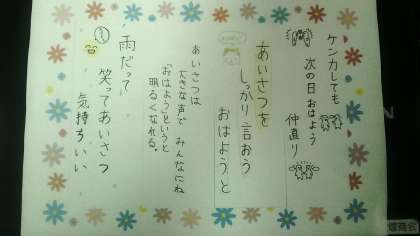 ケンカしても
次の日おはよう
仲直り
あいさつを
しっかり言おう
おはようと
あいさつは
大きな声で みんなにね
「おはよう」というと
明るくなれる。
雨だって
笑ってあいさつ
気持ちいい